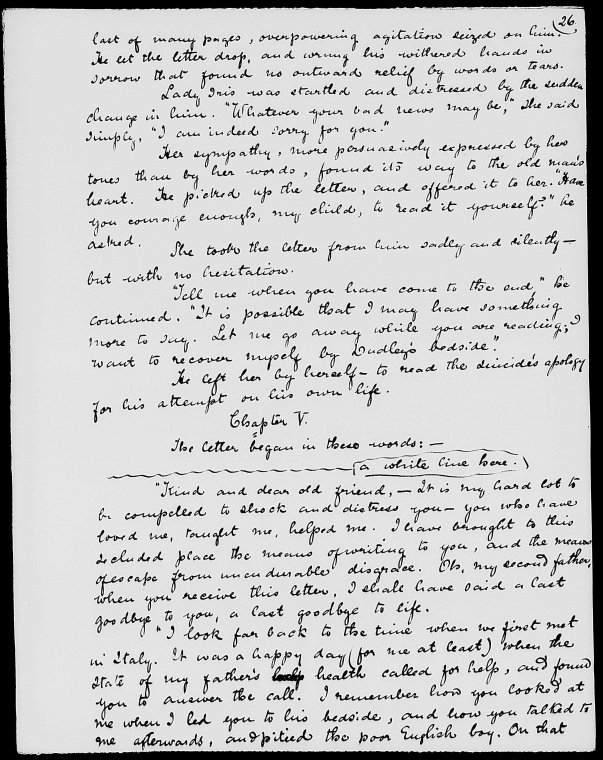 26
last of many pages, overpowering agitation seized on him.
He let the letter drop, and wrung his withered hands in
sorrow that found no outward relief by words or tears.
Lady Iris was startled and distressed by the sudden
change in him. "Whatever your bad news may be," she said
simply, "I am indeed sorry for you."
Her sympathy, more persuasively expressed by her
tones than by her words, found its way to the old man's
heart. He picked up the letter, and offered it to her. "Have
you courage enough, my child, to read it yourself?" he
asked.
She took the letter from him sadly and silently—
but with no hesitation.
"Tell me when you have come to the end" he
continued. "It is possible that I may have something
more to say. Let me go away while you are reading; I
want to recover myself by Dudley's bedside."
He left her by herself—to read the suicide's apology
for his attempt on his own life.
Chapter V.
The letter began in these words:—
a white line here.
"Kind and dear old friend,—It is my hard lot to
be compelled to shock and distress you—you who have
loved me, taught me, helped me. I have brought to this
secluded place the means of writing to you, and the means
of escape from unendurable disgrace. Oh, my second father,
when you receive this letter, I shall have said a last
goodbye to you, a last goodbye to life.
"I look far back to the time when we first met
in Italy. It was a happy day (for me at least) when the
state of my father's health called for help, and found
you to answer the call. I remember how you looked at
me when I led you to his bedside, and how you talked to
me afterwards, and pitied the poor English boy. On that